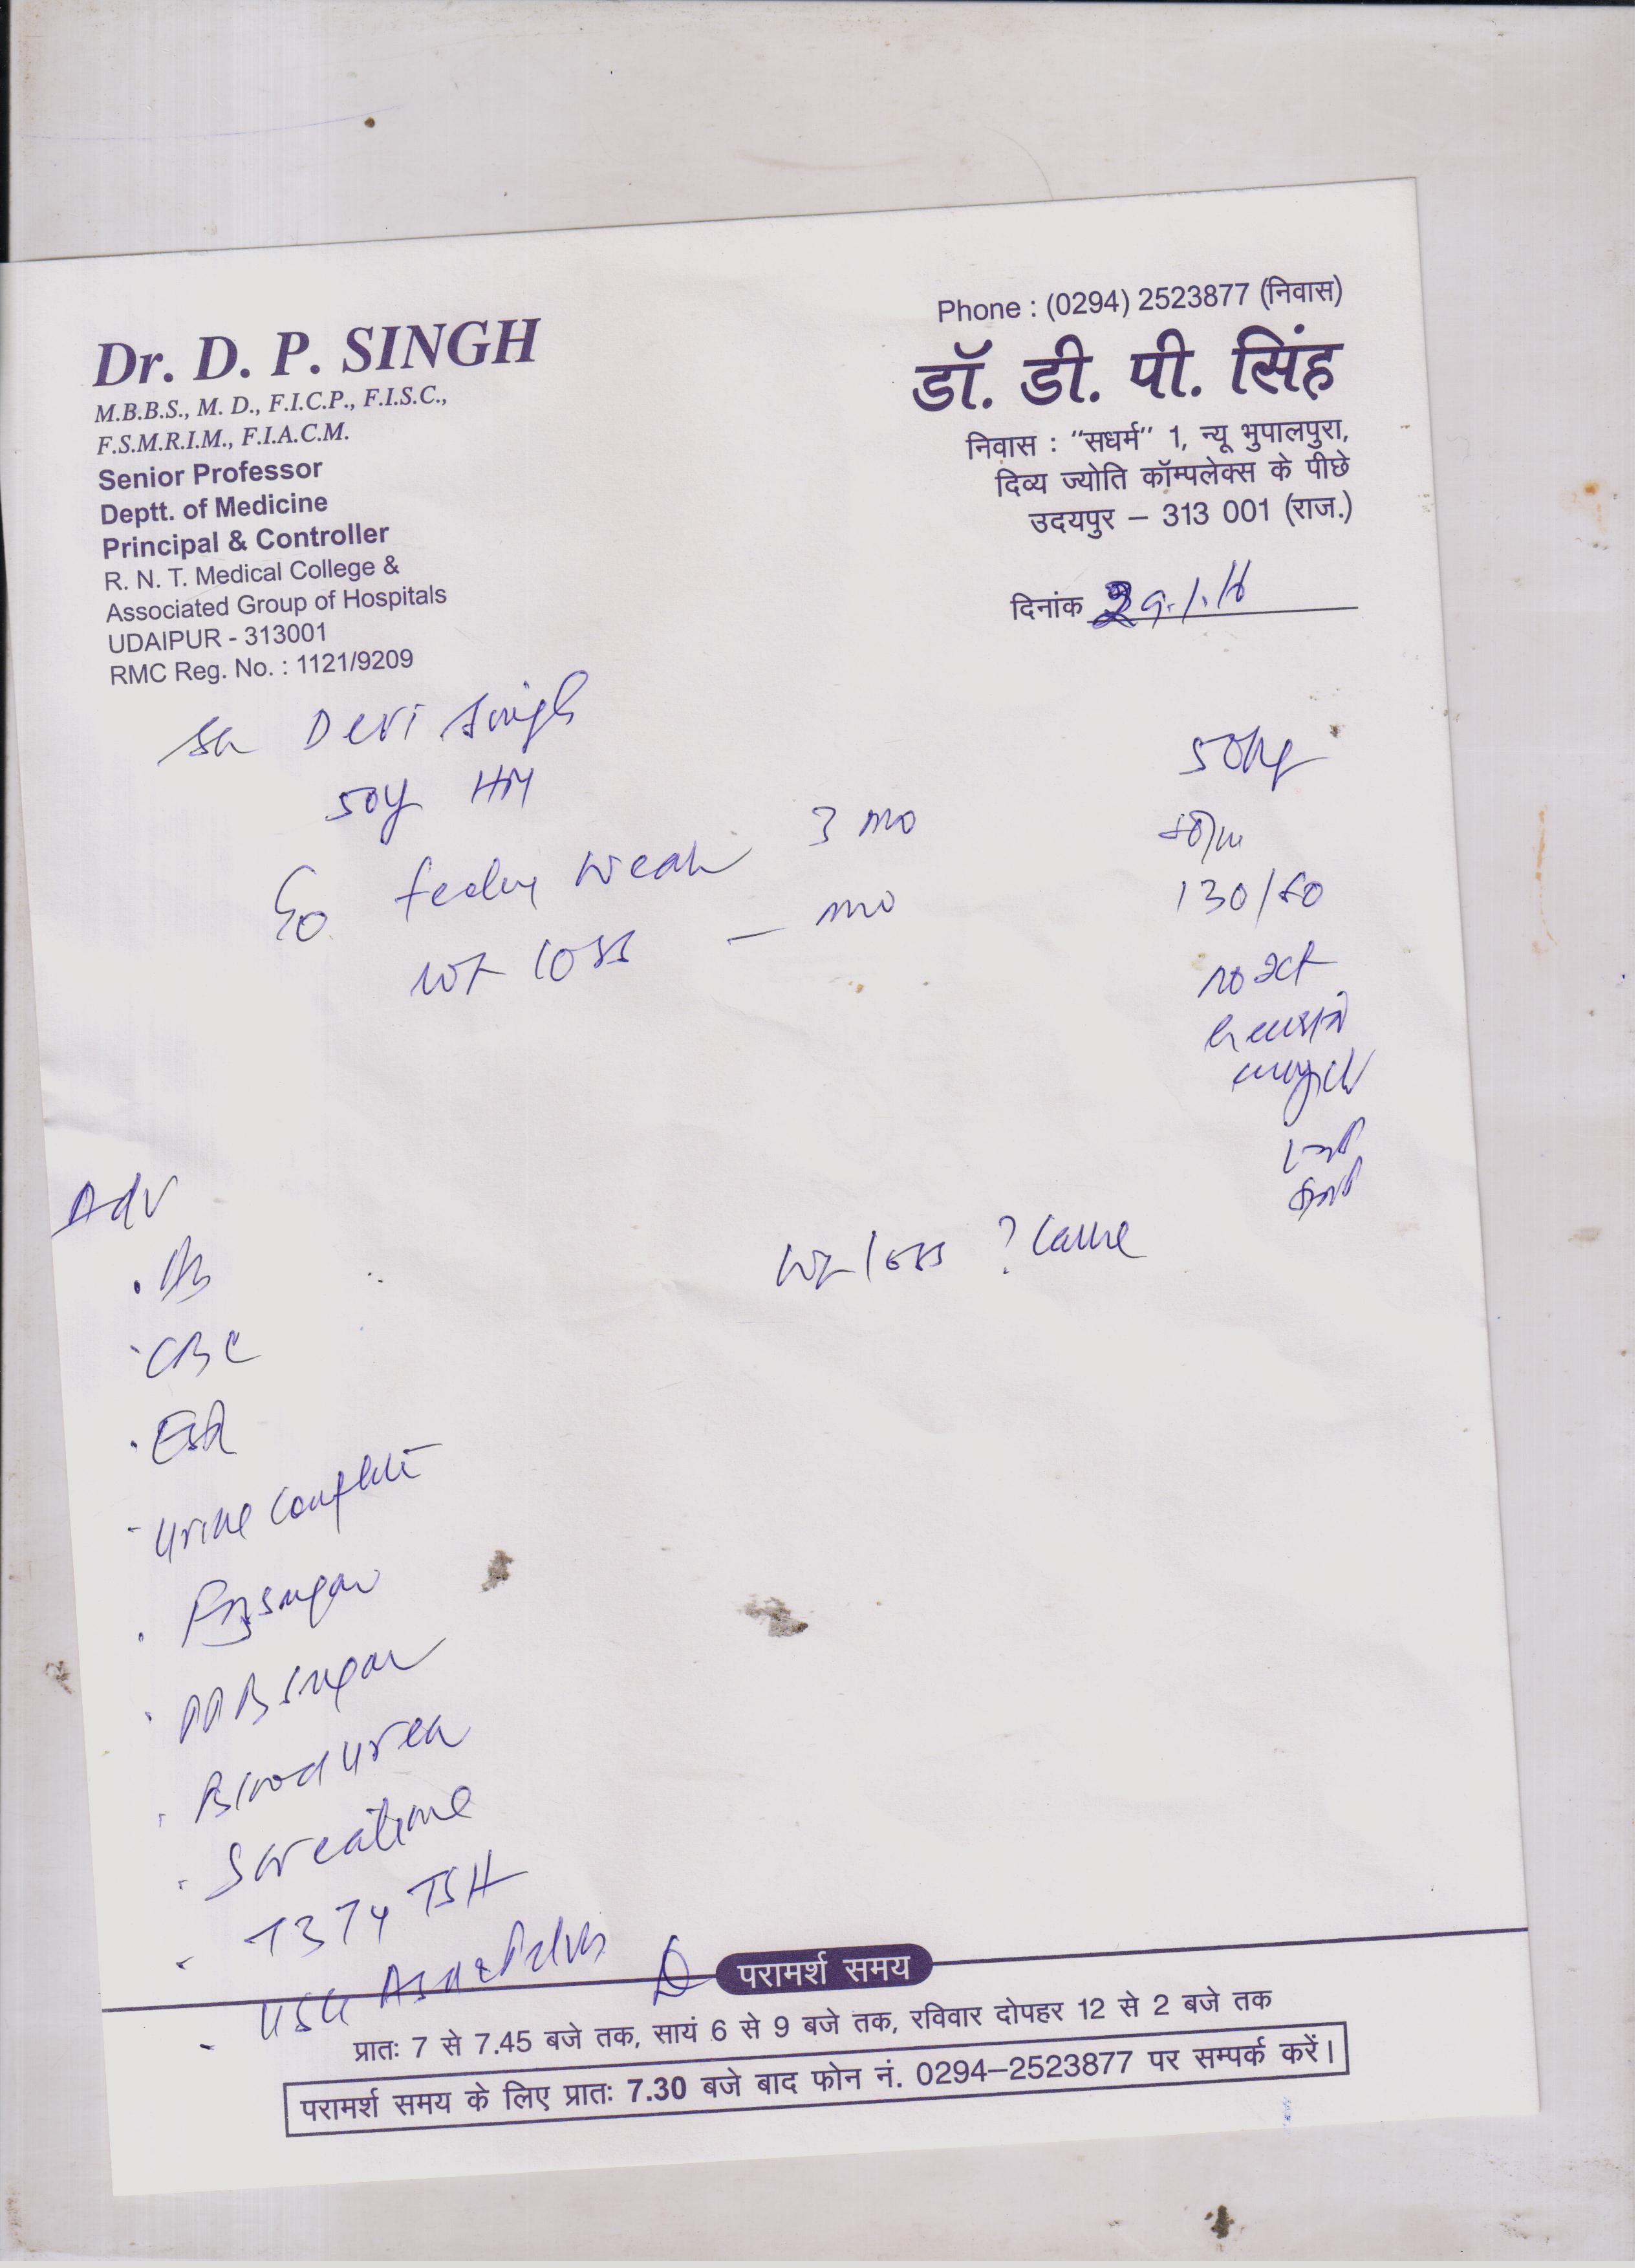 Phone : (0294) 2523877 (निवास)
Dr. D. P. SINGH
M.B.B.S., M. D., F.I.C.P., F.I.S.C.,
F.S.M.R.I.M., F.I.A.C.M.
Senior Professor
Deptt. of Medicine
Principal & Controller
R. N. T. Medical College &
Associated Group of Hospitals
UDAIPUR - 313001
RMC Reg. No. : 1121/9209
डॉ. डी. पी. सिंह
निवास : "सधर्म" 1, न्यू भुपालपुरा,
दिव्य ज्योति कॉम्पलेक्स के पीछे
उदयपुर – 313 001 (राज.)
दिनांक 29.1.16
Devi Singh
50y HM
50kg
C/o feeling weak 3 mo
80/m
wt loss – mo
130/80
no ict
Adv
wt loss ? cause
. Hb
. CBC
. ESR
- Urine complete
. FBsugar
. PPBsugar
. Blood urea
. S creatinine
- T3 T4 TSH
- USG Abd & Pelvis
परामर्श समय
प्रातः 7 से 7.45 बजे तक, सायं 6 से 9 बजे तक, रविवार दोपहर 12 से 2 बजे तक
परामर्श समय के लिए प्रातः 7.30 बजे बाद फोन नं. 0294–2523877 पर सम्पर्क करें।